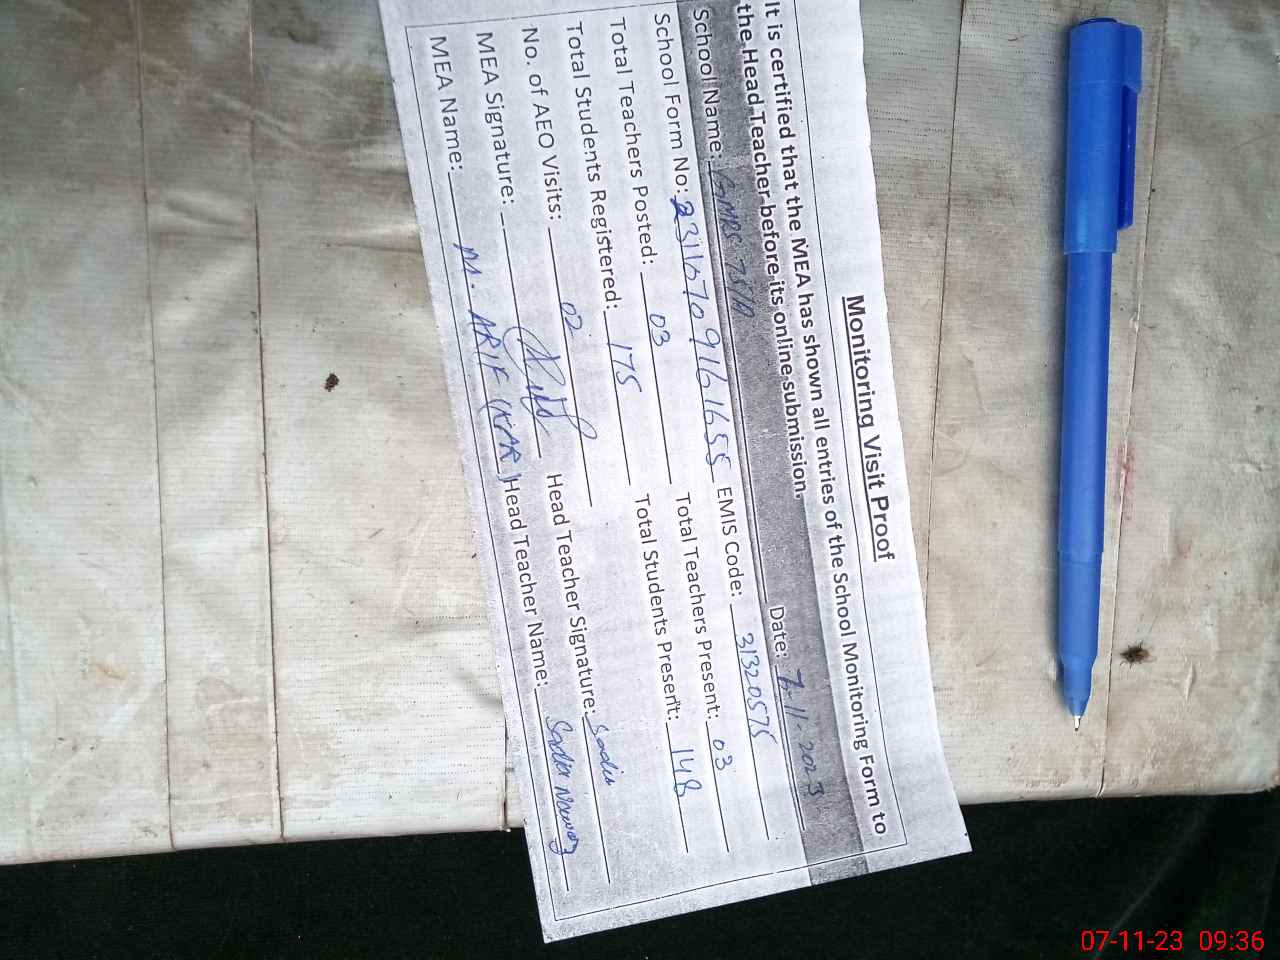 Monitoring Visit Proof
It is certified that the MEA has shown all entries of the School Monitoring Form to
the Head Teacher before its online submission.
School Name: GMPS 75/A Date: 7-11-2023
School Form No: 23110709161655 EMIS Code: 31320575
Total Teachers Posted: 03 Total Teachers Present: 03
Total Students Registered: 175 Total Students Present: 148
No. of AEO Visits: 02
MEA Signature: Head Teacher Signature: Sadia
MEA Name: M. ARIF Head Teacher Name: Sadia Nawaz
07-11-23 09:36